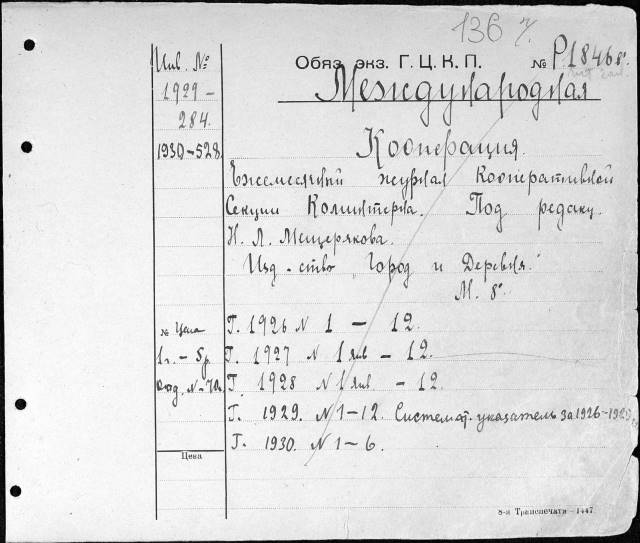 136
Обяз. экз. Г. Ц. К. П. № Р1846 8°.
Инв. №
1929-
284.
1930-528.
Международная
Кооперация.
Ежемесячный журнал Кооперативной
Секции Коминтерна. Под редакц.
Н. Л. Мещерякова.
Изд-ство "Город и Деревня."
М. 8°.
№ Цена
1г. - 5р
отд. N - 70к.
Г. 1926 N 1 - 12.
Г. 1927 N 1 янв - 12.
Г. 1928 N 1 янв - 12.
Г. 1929. N 1-12. Системат. указатель за 1926-1929
Г. 1930. N 1-6.
Цена
8-я Транспечати-1447